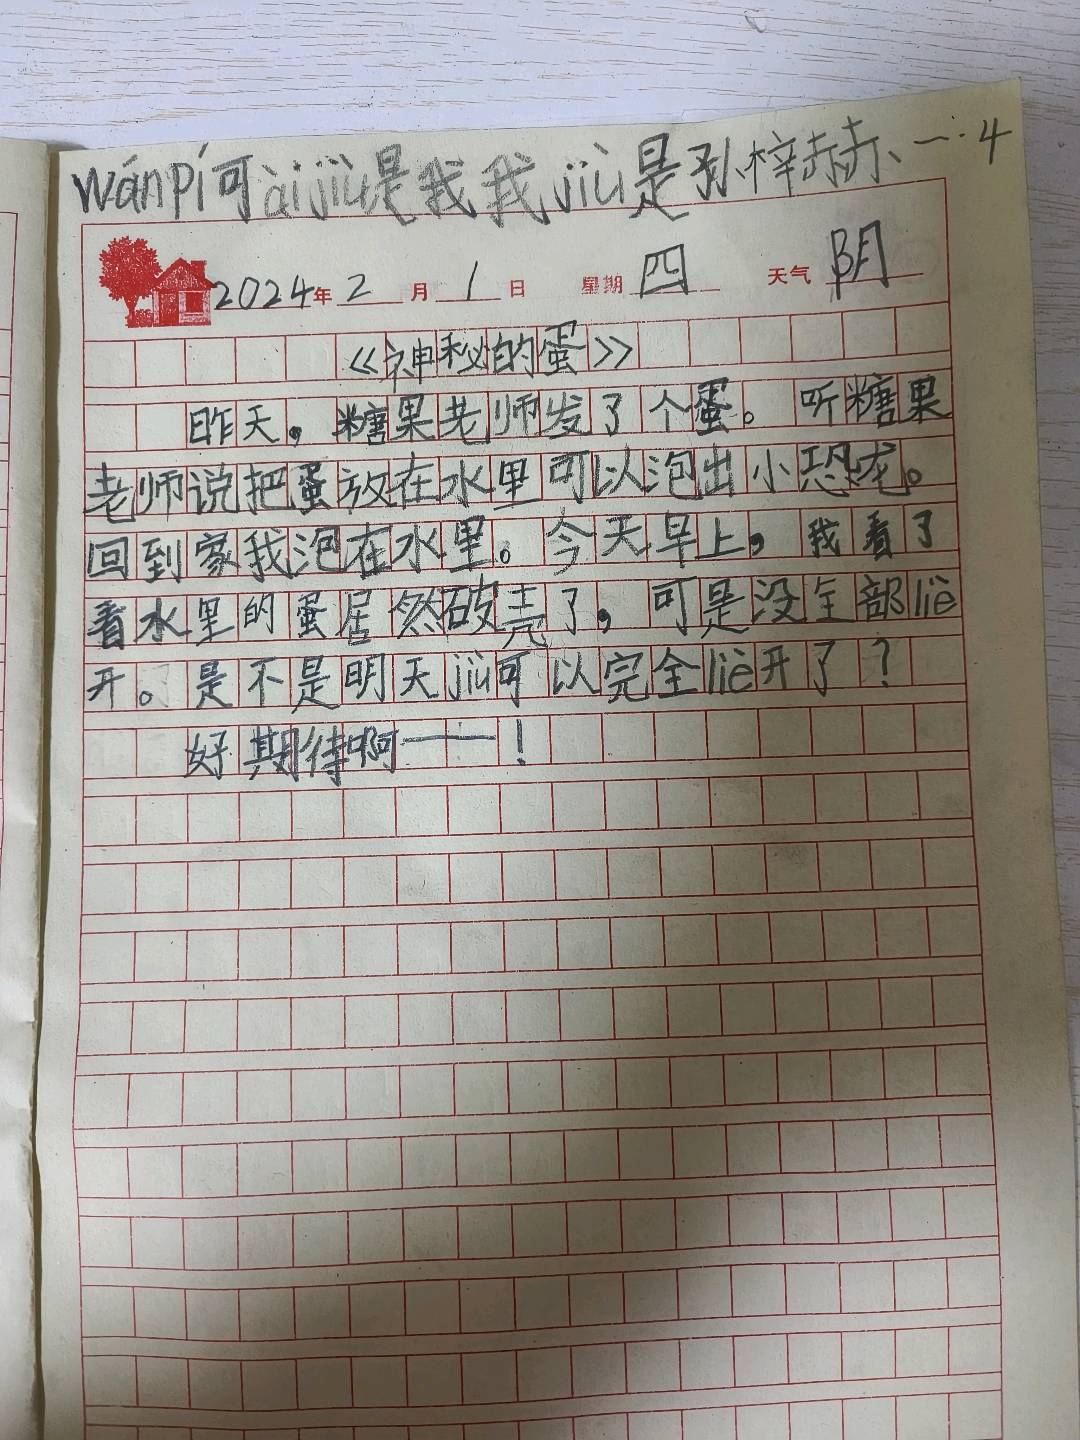 wánpí可àijiù是我我jiù是孙梓赫、一·4
2024年2月1日 星期四 天气阴
《神秘的蛋》
昨天,糖果老师发了个蛋。听糖果
老师说把蛋放在水里可以泡出小恐龙。
回到家我泡在水里。今天早上,我看了
看水里的蛋居然破壳了,可是没全部liè
开。是不是明天jiù可以完全liè开了?
好期待啊——!